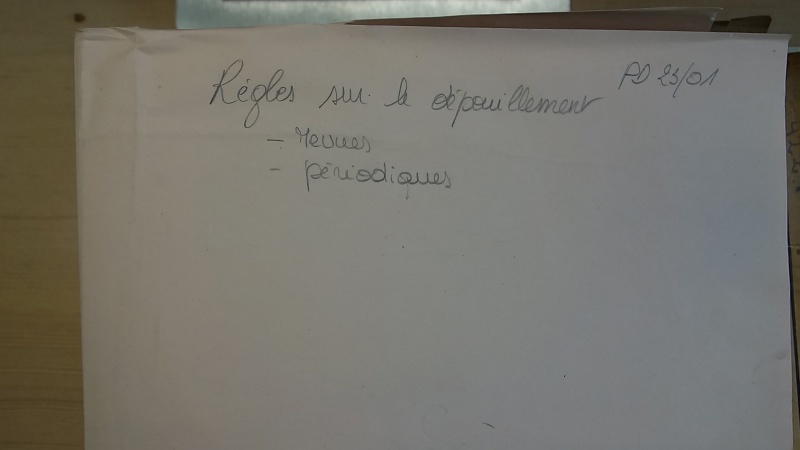 PD 23/01
Règles sur le dépouillement
- revues
- périodiques